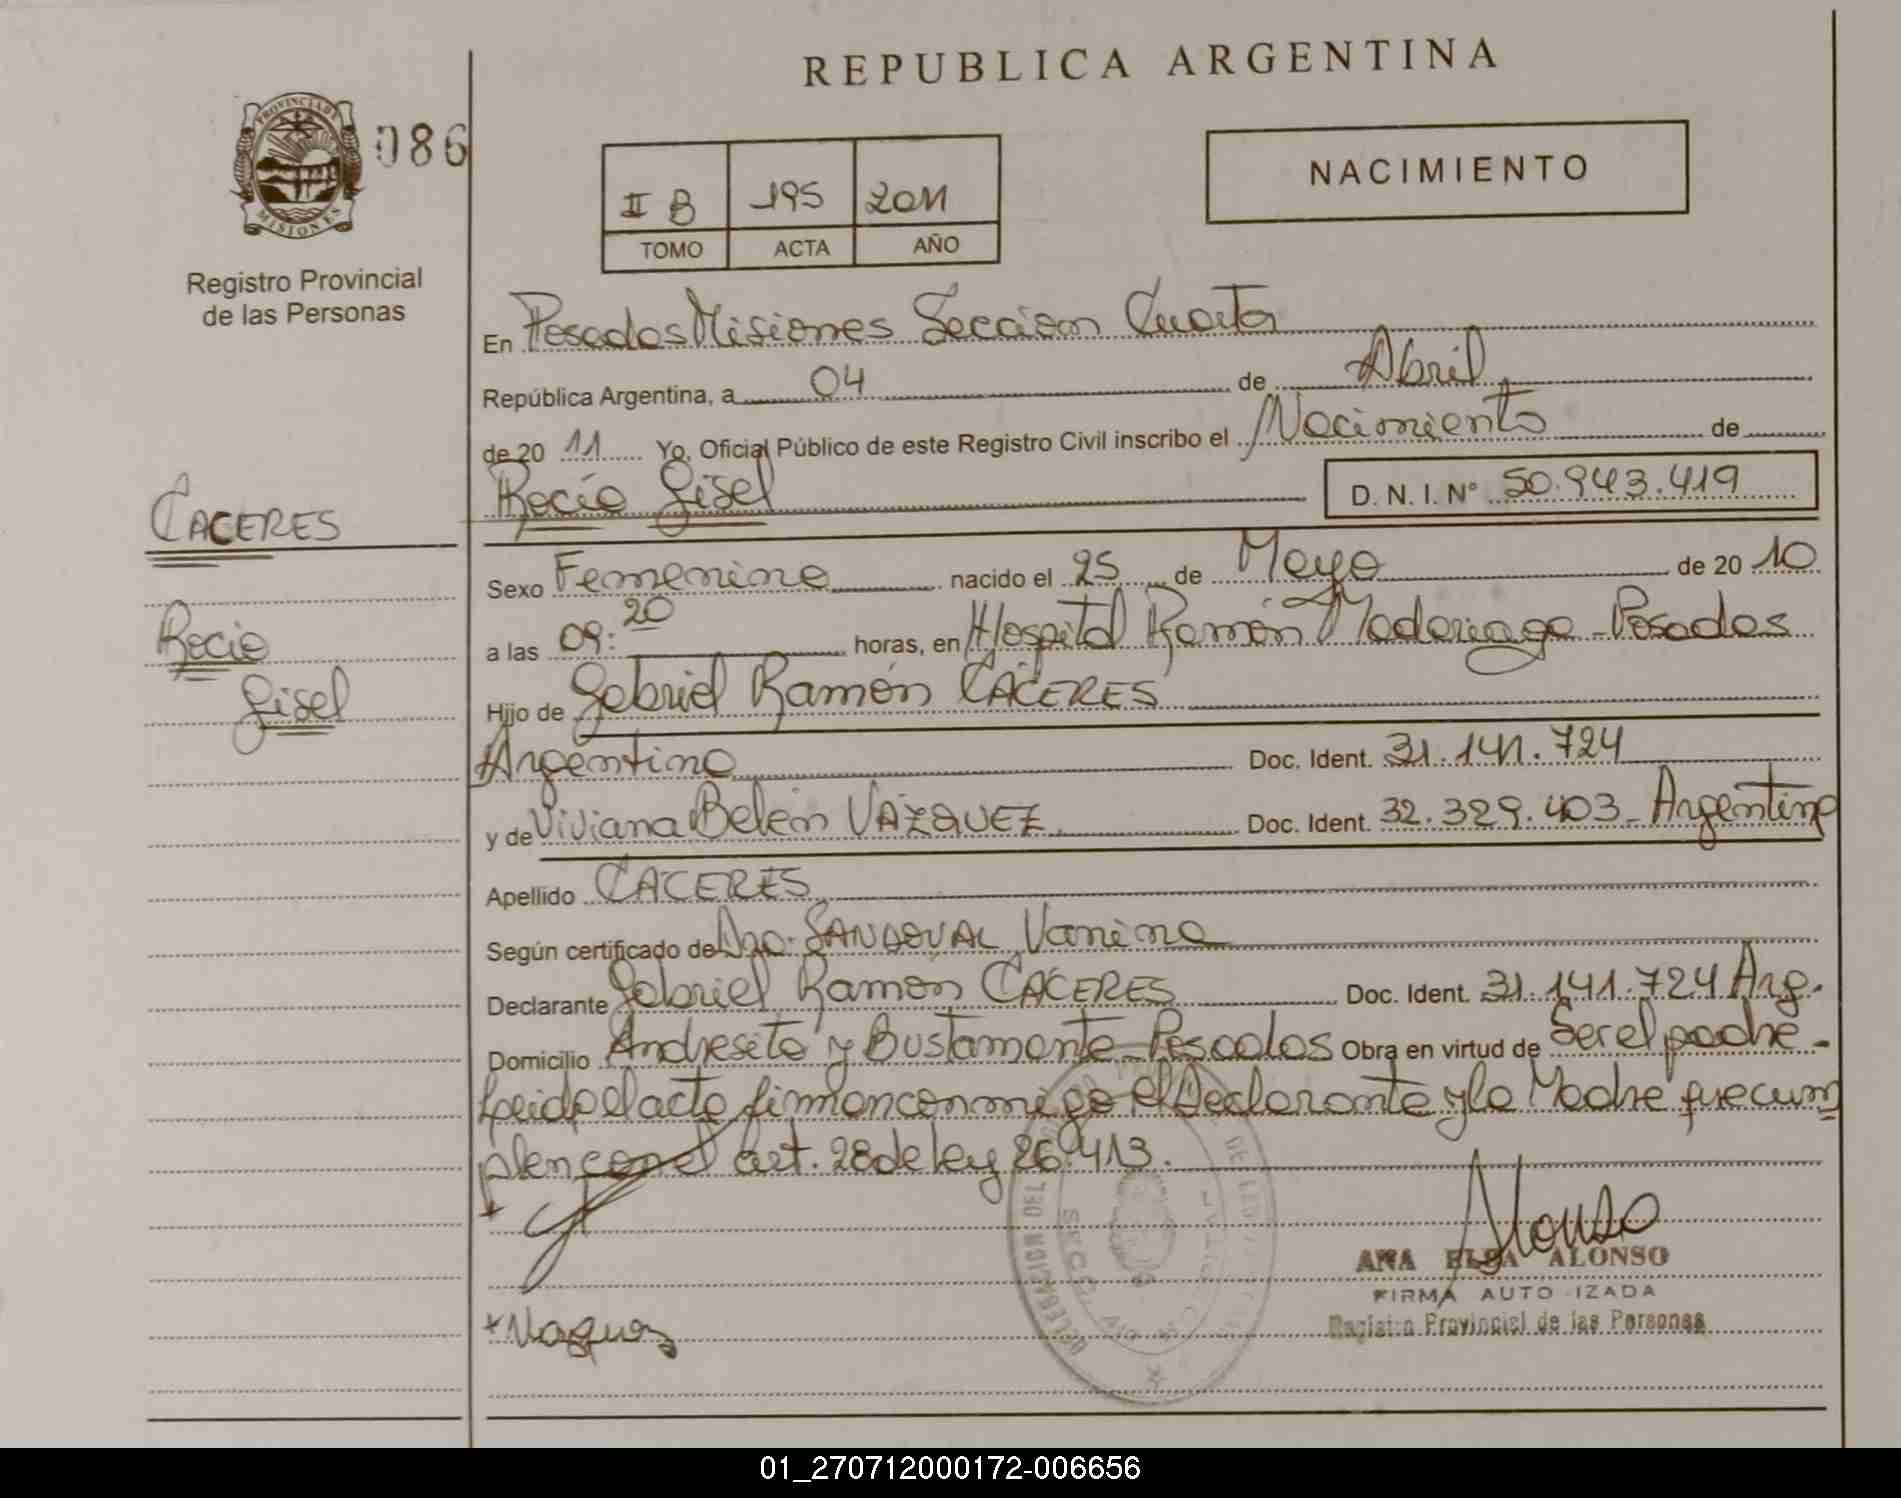 REPUBLICA ARGENTINA
PROVINCIA DE
MISIONES
086
Registro Provincial
de las Personas
II B 195 2011
TOMO ACTA AÑO
NACIMIENTO
En Posadas Misiones Seccion Cuarta
República Argentina, a 04 de Abril
de 20 11 Yo, Oficial Público de este Registro Civil inscribo el Nacimiento de
Rocío Gisel D. N. I. N° 50.943.419
CACERES
Rocio
Gisel
Sexo Femenino nacido el 25 de Mayo de 20 10
a las 09:20 horas, en Hospital Ramón Madariaga - Posadas
Hijo de Gabriel Ramón CACERES
Argentino Doc. Ident. 31.141.724
y de Viviana Belén VAZQUEZ Doc. Ident. 32.329.403 - Argentina
Apellido CACERES
Según certificado de Dra. SANDOVAL Vanina
Declarante Gabriel Ramón CÁCERES Doc. Ident. 31.141.724 Arg.
Domicilio Andresito y Bustamante - Posadas Obra en virtud de Ser el padre -
Leido el acta firman conmigo el Declarante y la Madre que cum
plen con el art. 28 de ley 26.413.
Alonso
ANA ELSA ALONSO
FIRMA AUTO IZADA
Registro Provincial de las Personas
01_270712000172-006656